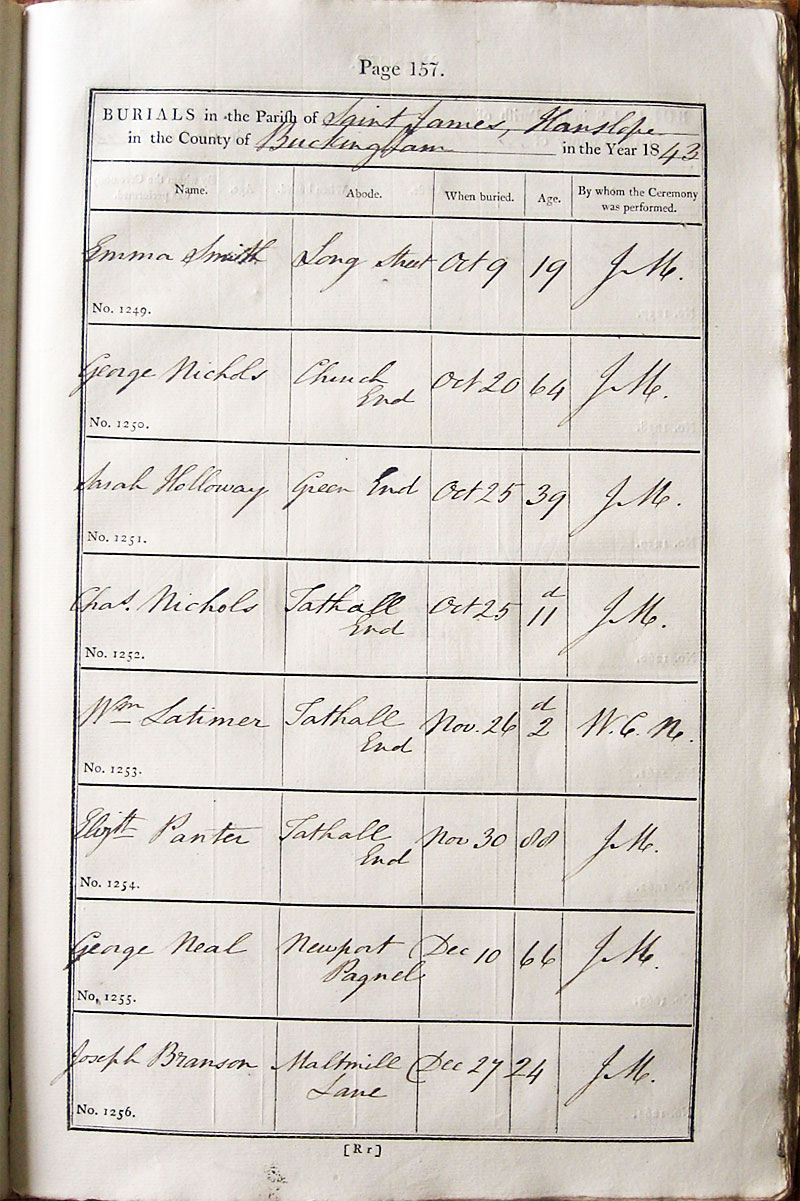 Page 157.
BURIALS in the Parish of Saint James, Hanslope
in the County of Buckingham in the Year 1843
Name. Abode. When buried. Age. By whom the Ceremony was performed.
Emma Smith Long Street Oct 9 19 J. M.
No. 1249.
George Nichols Church End Oct 20 64 J. M.
No. 1250.
Sarah Holloway Green End Oct 25 39 J. M.
No. 1251.
Chas. Nichols Tathall End Oct 25 11 d J. M.
No. 1252.
Wm Latimer Tathall End Nov. 26 2 d W. C. N.
No. 1253.
Elizth Panter Tathall End Nov 30 88 J. M.
No. 1254.
George Neal Newport Pagnel Dec 10 66 J. M.
No. 1255.
Joseph Branson Maltmill Lane Dec 27 24 J. M.
No. 1256.
[R r]